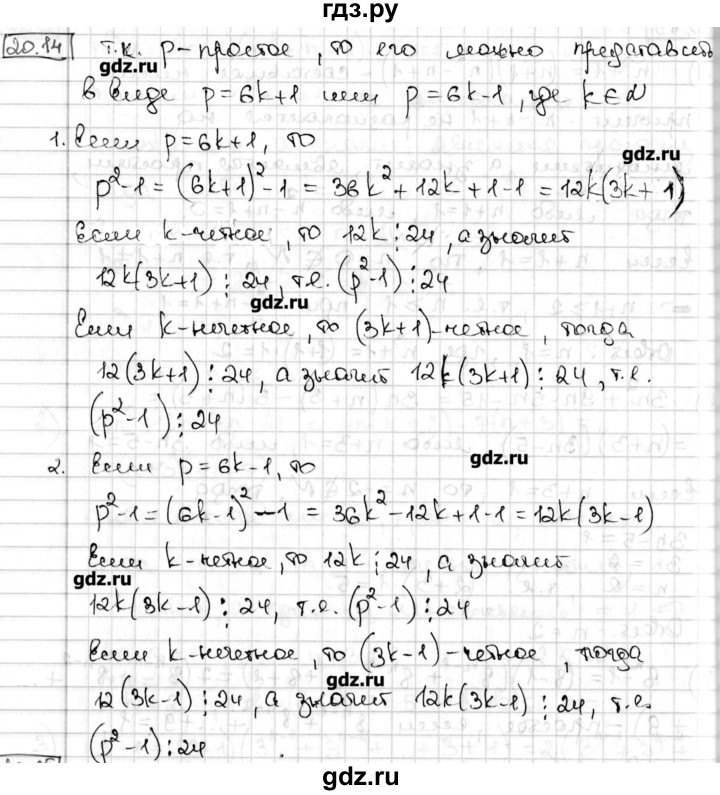 гдз.ру
20.14 т.к. p-простое, то его можно представить
gdz.ru
в виде p=6k+1 или p=6k-1, где k∈N
1. Если p=6k+1, то
gdz.ru
p²-1=(6k+1)²-1=36k²+12k+1-1=12k(3k+1)
Если k-четное, то 12k⋮24, а значит
12k(3k+1)⋮24, т.е. (p²-1)⋮24
gdz.ru
Если k-нечетное, то (3k+1)-четное, тогда
12(3k+1)⋮24, а значит 12k(3k+1)⋮24, т.е.
(p²-1)⋮24
gdz.ru
2. Если p=6k-1, то
p²-1=(6k-1)²-1=36k²-12k+1-1=12k(3k-1)
Если k-четное, то 12k⋮24, а значит
gdz.ru
12k(3k-1)⋮24, т.е. (p²-1)⋮24
Если k-нечетное, то (3k-1)-четное, тогда
12(3k-1)⋮24, а значит 12k(3k-1)⋮24, т.е.
(p²-1)⋮24
gdz.ru